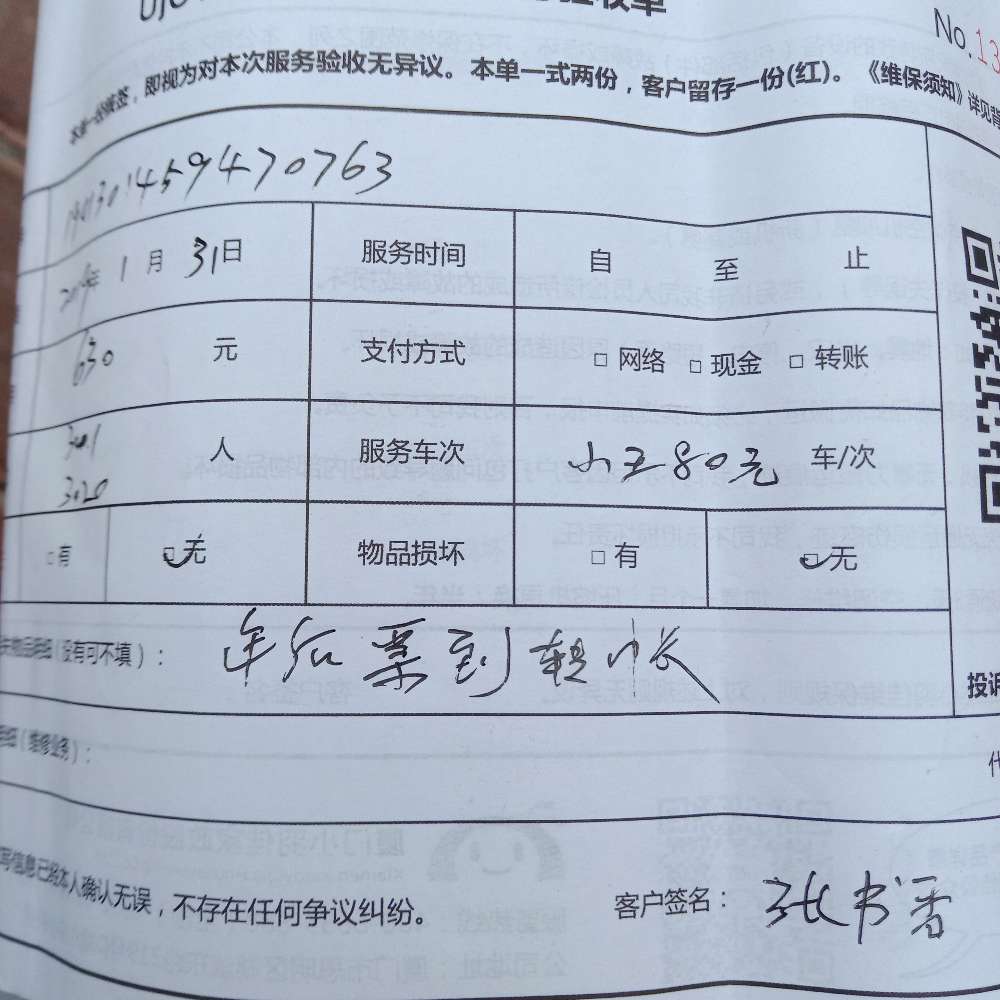 验收单
No.13
本单一经读签，即视为对本次服务验收无异议。本单一式两份，客户留存一份(红)。《维保须知》详见背
1901301459470763
2019年 1 月 31 日 服务时间 自 至 止
630 元 支付方式 □ 网络 □ 现金 □ 转账
3001 3020 人 服务车次 小王80元 车/次
□ 有 □ 无 物品损坏 □ 有 □ 无
(没有可不填)： 年后票到转帐
投诉
(维修业务)：
写信息已经本人确认无误，不存在任何争议纠纷。
客户签名： 张书香